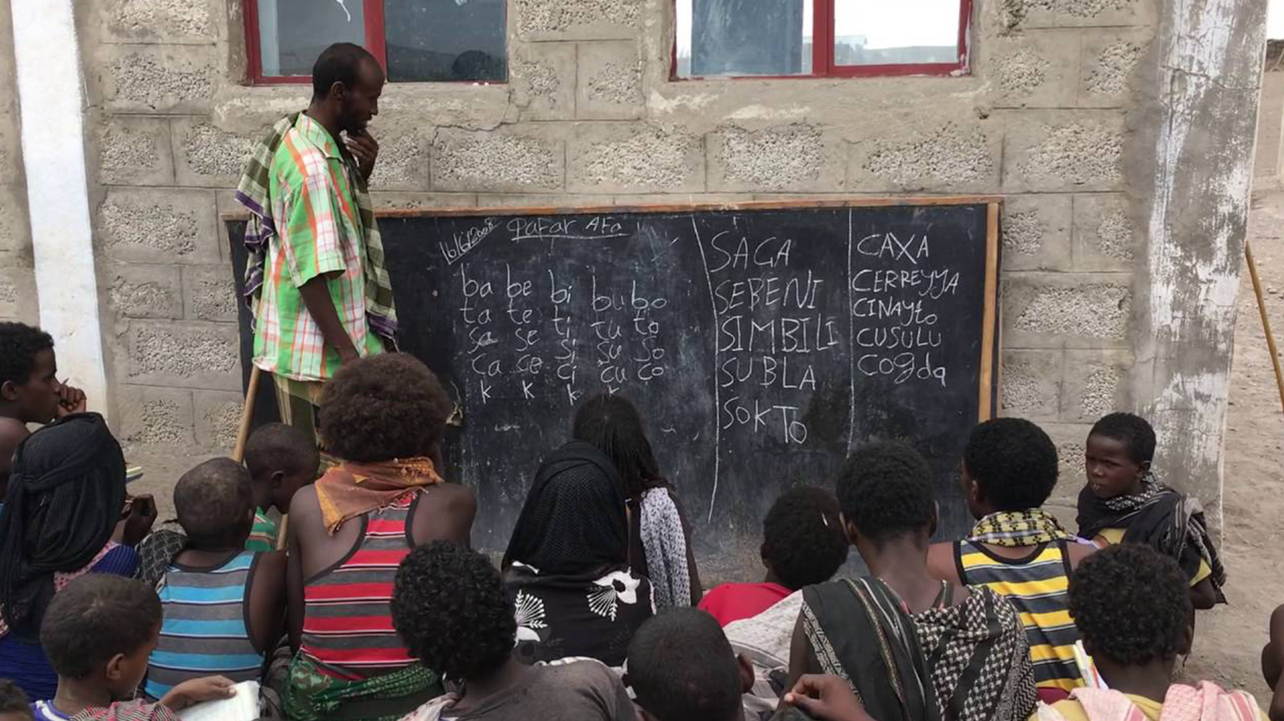 16/6/2008 Qafar Afa
ba be bi bu bo
ta te ti tu to
sa se si su so
ca ce ci cu co
k k k k
SAGA
SEBENI
SIMBILI
SUBLA
SOKTO
CAXA
CERREYYA
CINAYto
CUSULU
Cogda